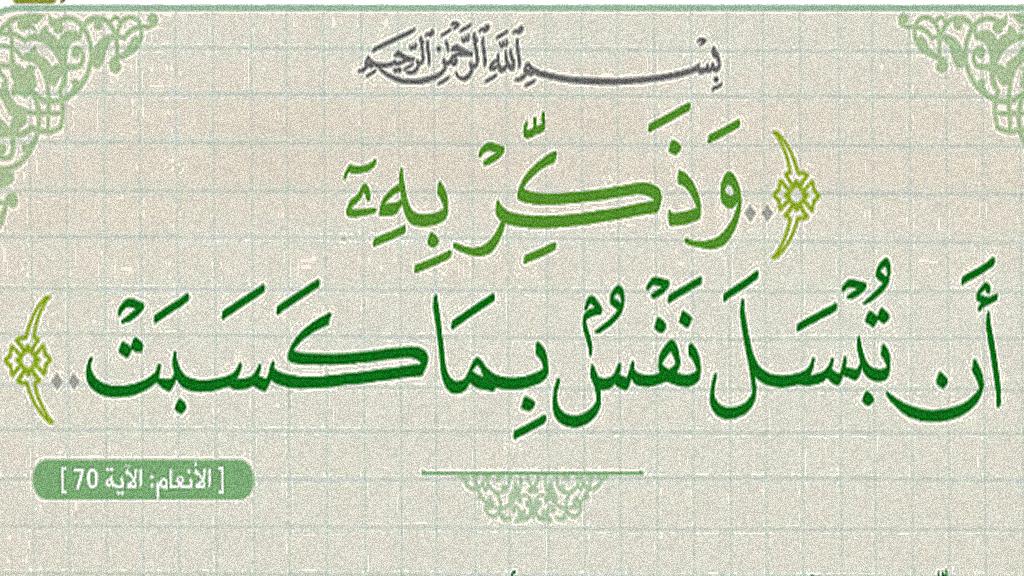 بِسْمِ اللَّهِ الرَّحْمَٰنِ الرَّحِيمِ
﴿..وَذَكِّرْ بِهِۦٓ
أَن تُبْسَلَ نَفْسٌۢ بِمَا كَسَبَتْ..﴾
[ الأنعام: الآية 70 ]